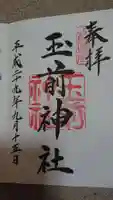 奉拝
玉前神社
平成二十九年九月十五日